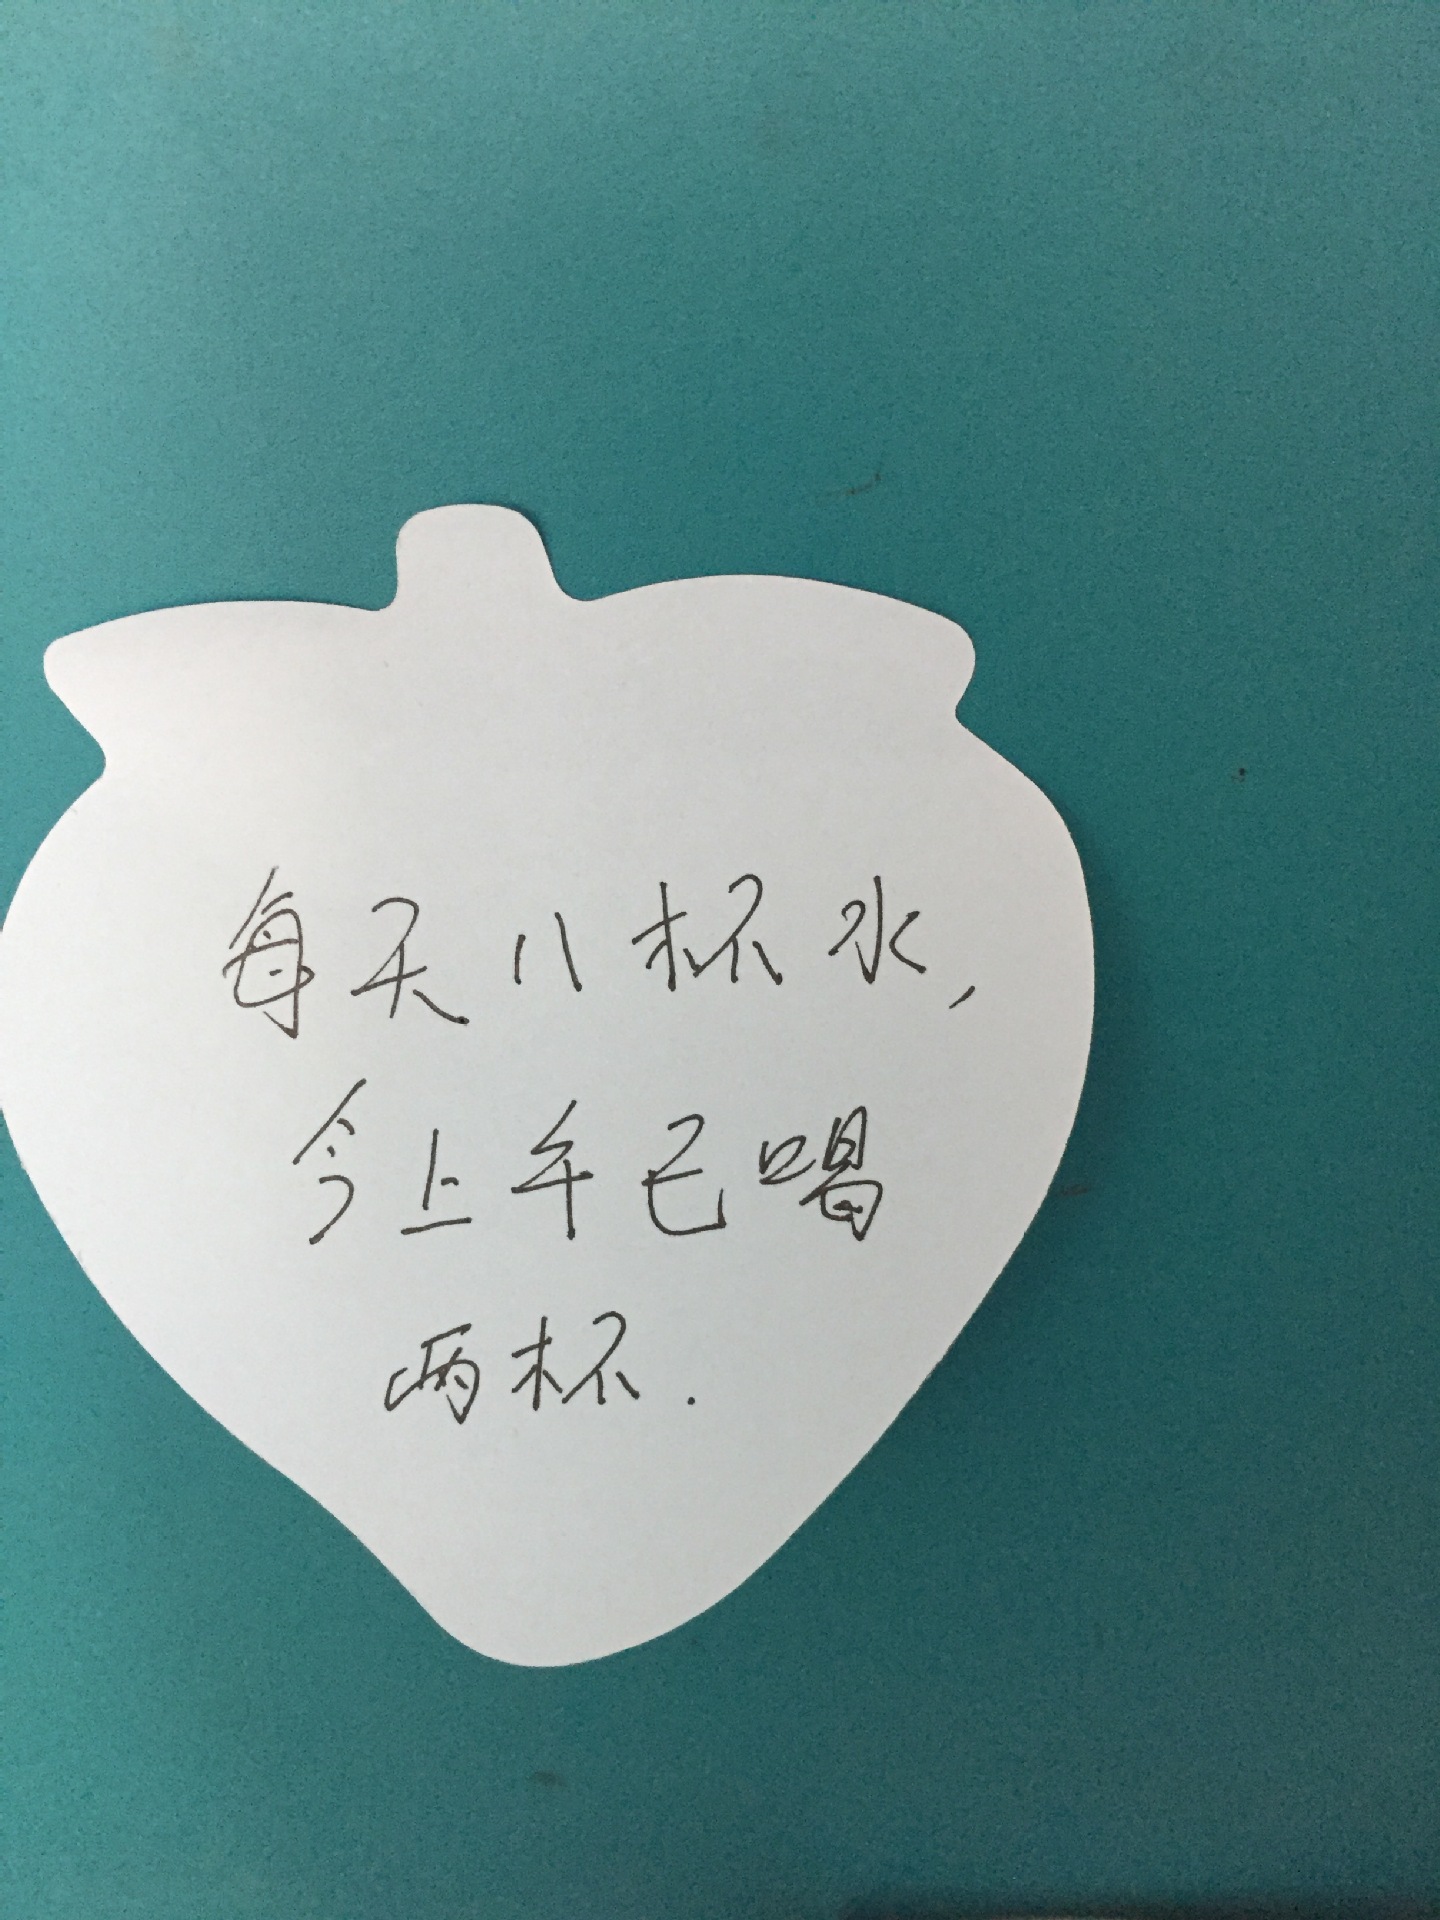 每天八杯水,
今上午已喝
两杯.